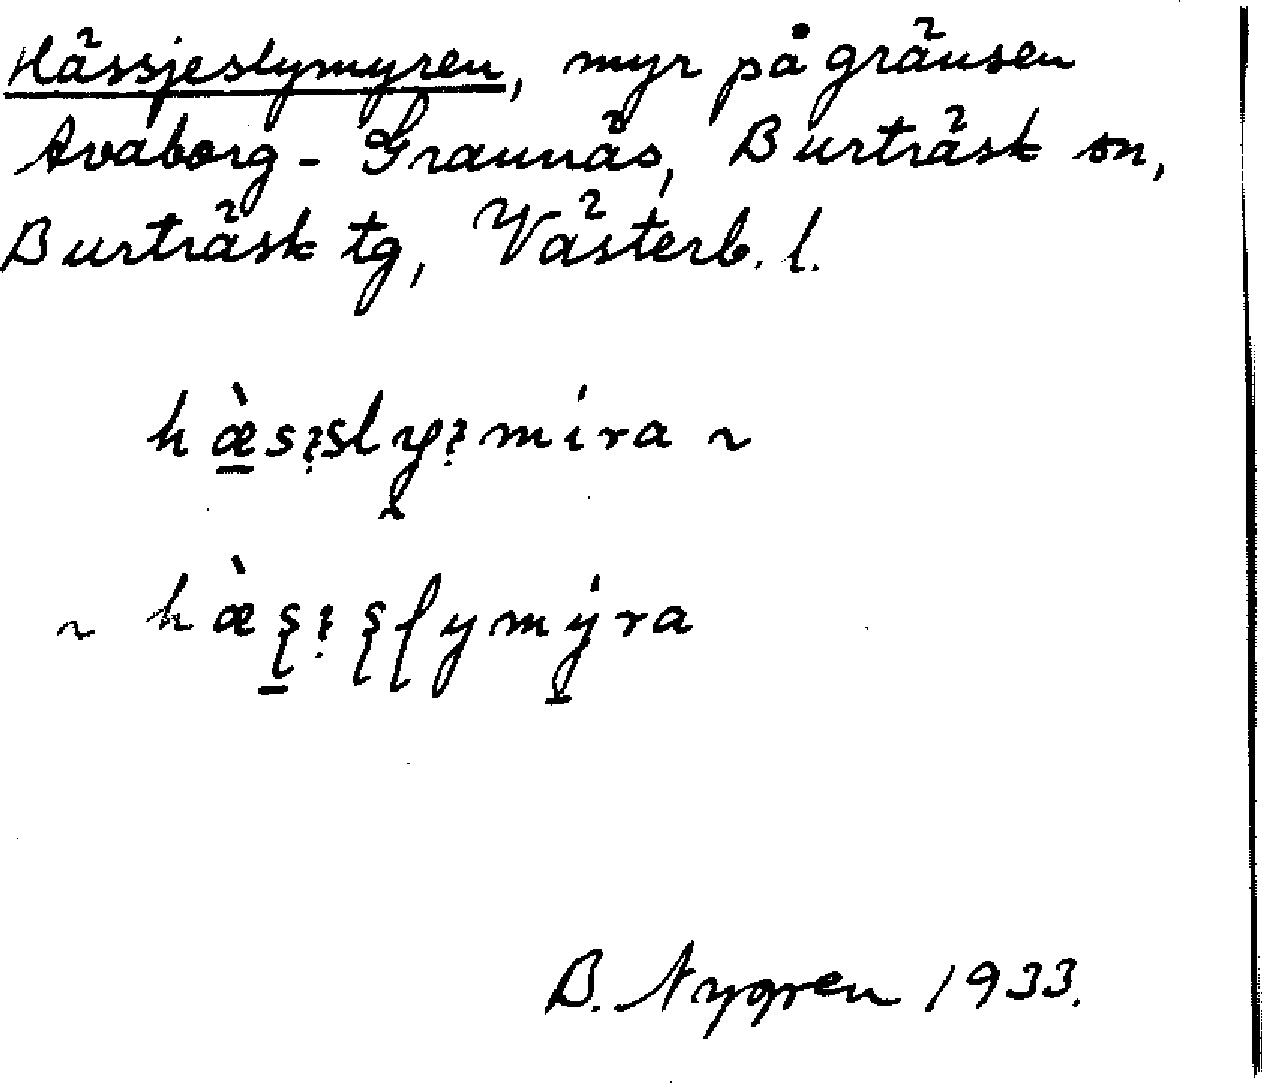 Hässjeslymyren, myr på gränsen
Avaborg - Grannäs, Burträsk sn,
Burträsk tg, Västerb. l.
hæ̀sʔslyʔmíra ~
~ hæ̀ʂʔʂɭymýra
B. Nygren 1933.